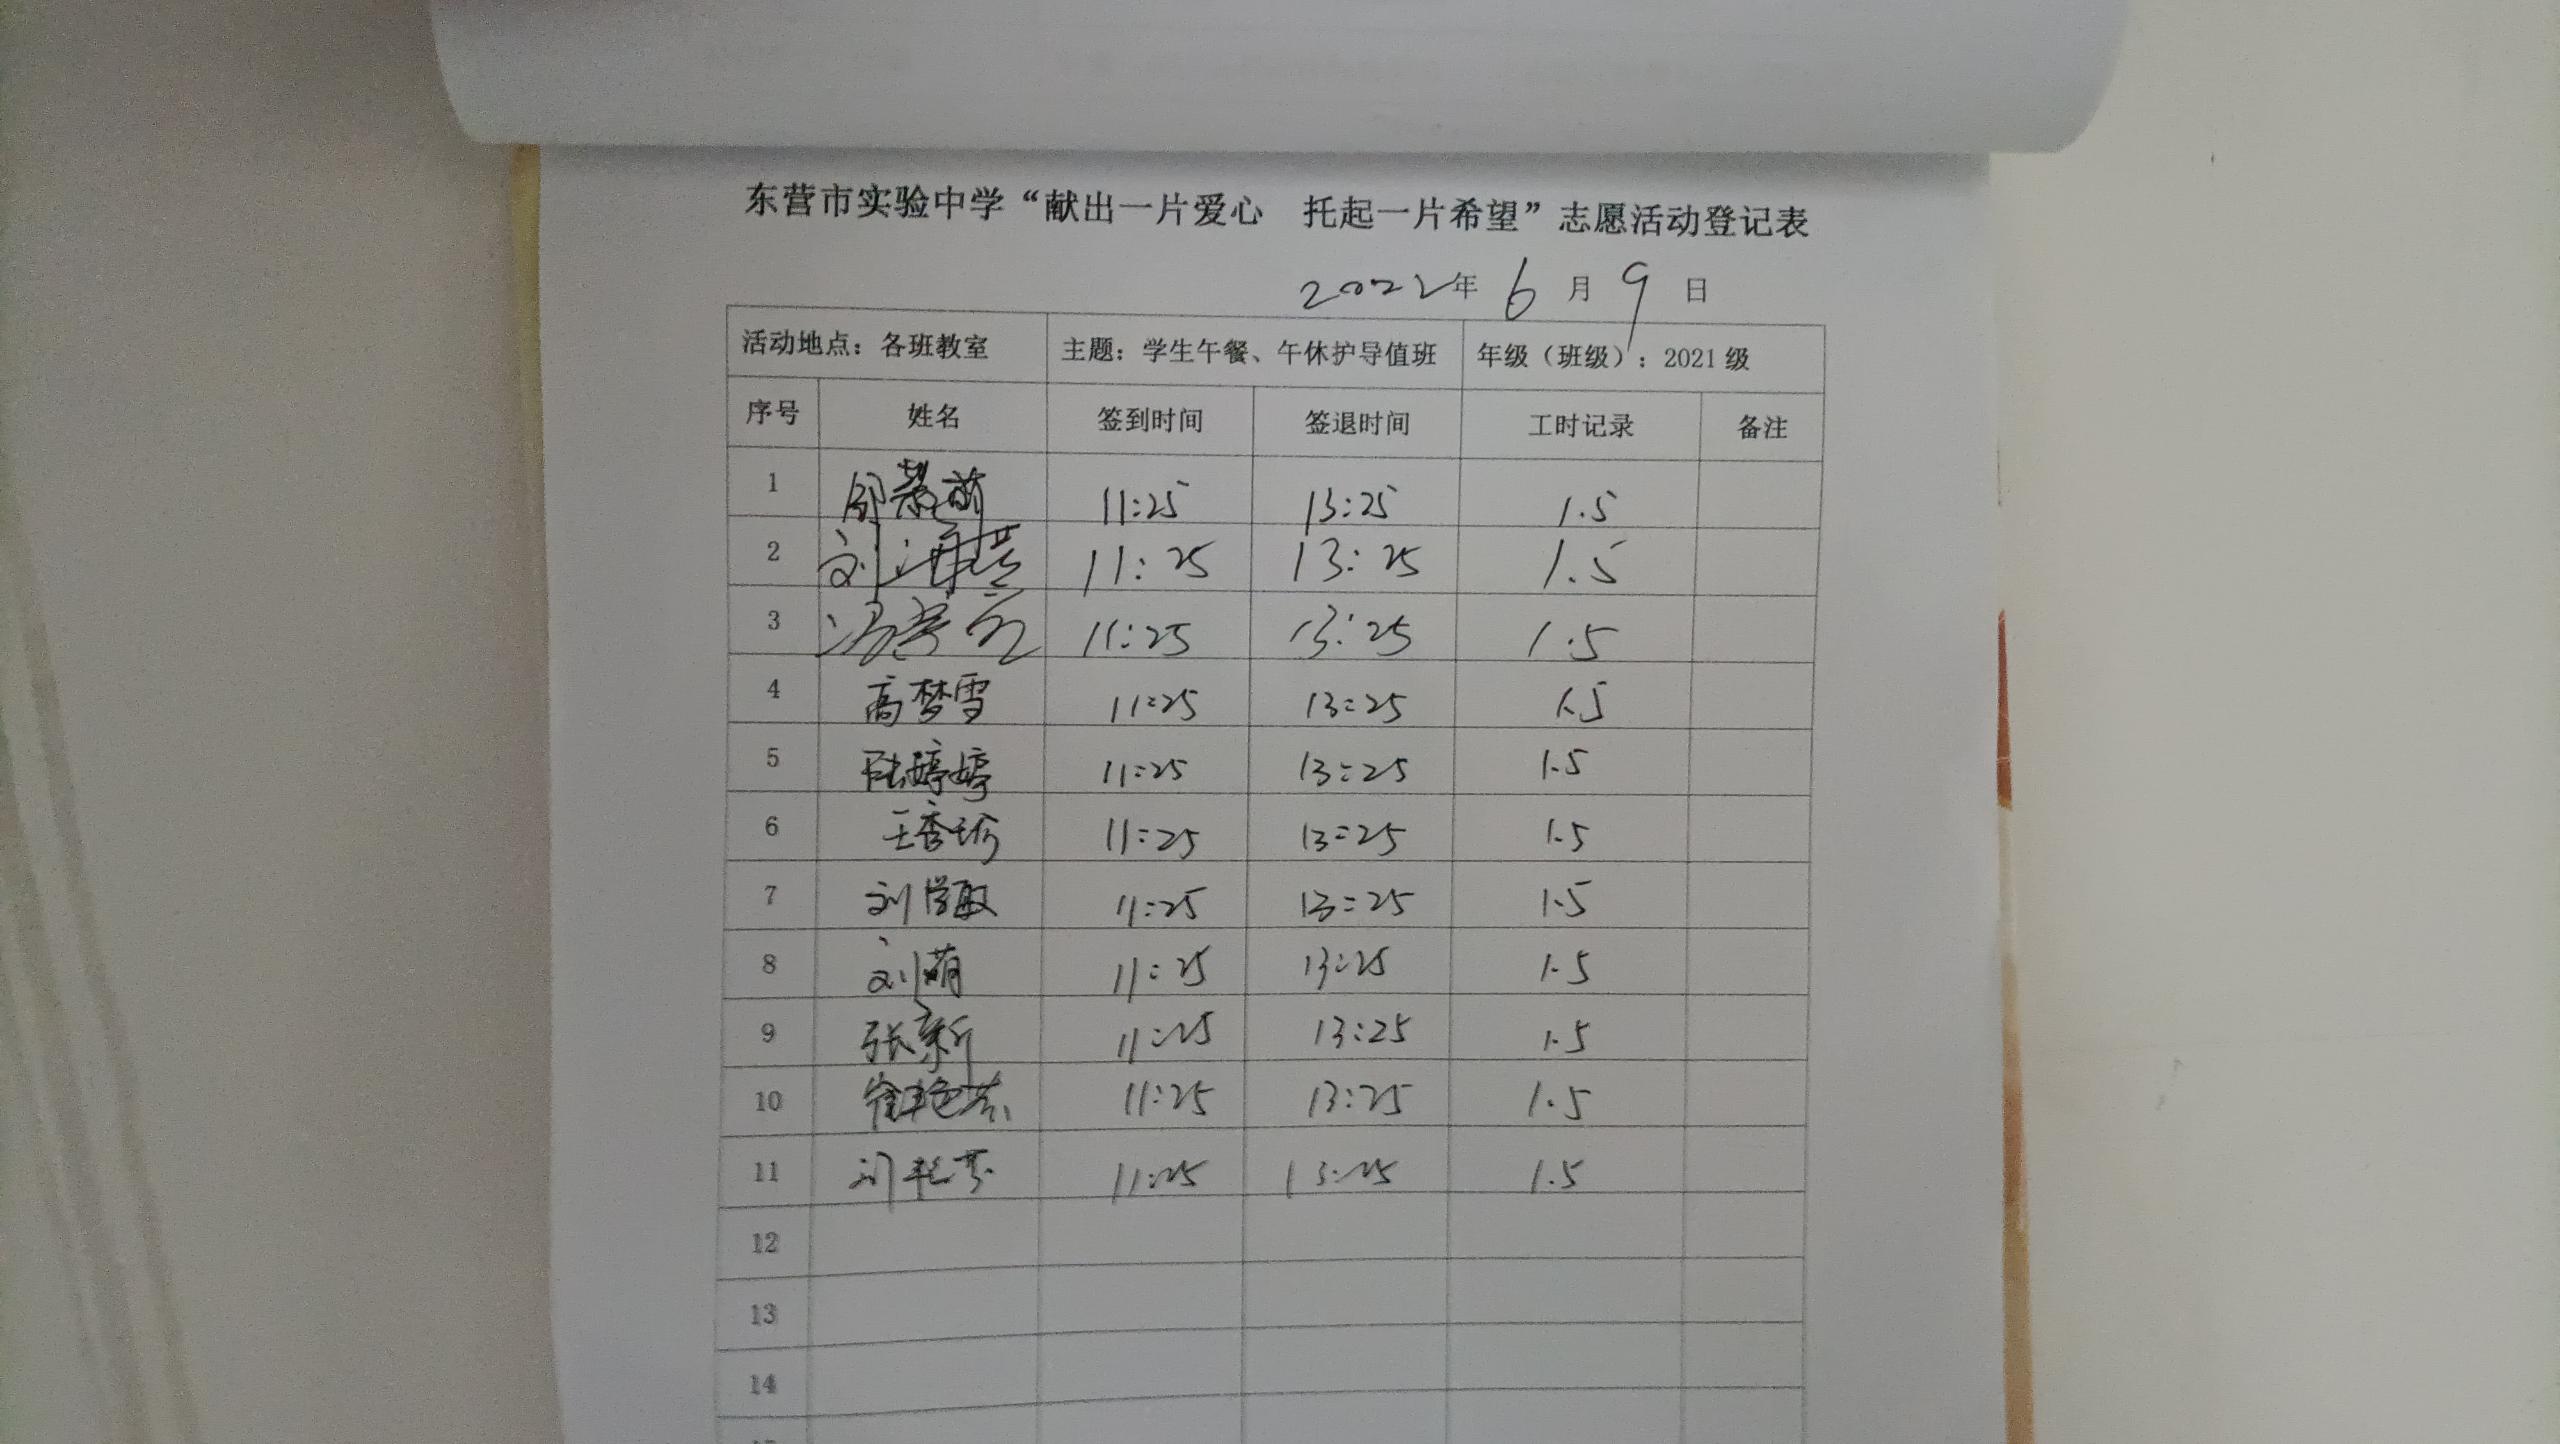 东营市实验中学“献出一片爱心 托起一片希望”志愿活动登记表
2022年 6 月 9 日
活动地点：各班教室 主题：学生午餐、午休护导值班 年级（班级）：2021级
序号 姓名 签到时间 签退时间 工时记录 备注
1 11:25 13:25 1.5
2 刘海 11:25 13:25 1.5
3 冯 11:25 13:25 1.5
4 高梦雪 11:25 13:25 1.5
5 陆婷婷 11:25 13:25 1.5
6 王秀珍 11:25 13:25 1.5
7 刘学敏 11:25 13:25 1.5
8 刘萌 11:25 13:25 1.5
9 张新 11:25 13:25 1.5
10 崔艳芬 11:25 13:25 1.5
11 刘艳芬 11:25 13:25 1.5
12
13
14